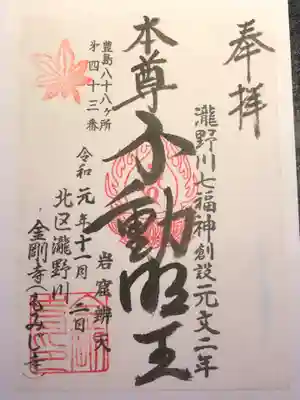 奉拝
瀧野川七福神創設元文二年
本尊不動明王
岩窟辨天
豊島八十八ヶ所
第四十三番
令和元年十一月二日
北区瀧野川
金剛寺(もみじ寺